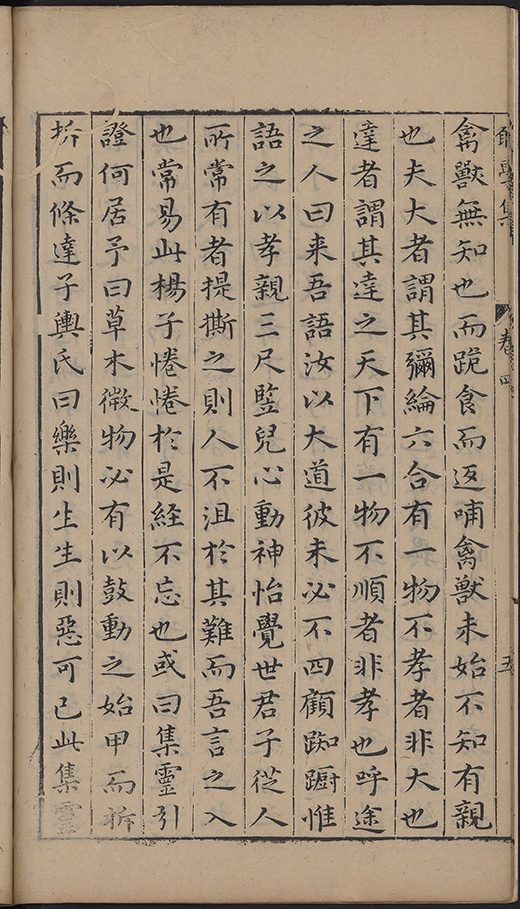 集
卷四
五
禽獸無知也而跪食而返哺禽獸未始不知有親
也夫大者謂其彌綸六合有一物不孝者非大也
達者謂其達之天下有一物不順者非孝也呼途
之人曰来吾語汝以大道彼未必不四顧踟蹰惟
語之以孝親三尺竪兒心動神怡覺世君子從人
所常有者提撕之則人不沮於其難而吾言之入
也常易此楊子惓惓於是経不忘也或曰集靈引
證何居予曰草木微物必有以鼓動之始甲而拆
拆而條達子輿氏曰樂則生生則惡可已此集靈